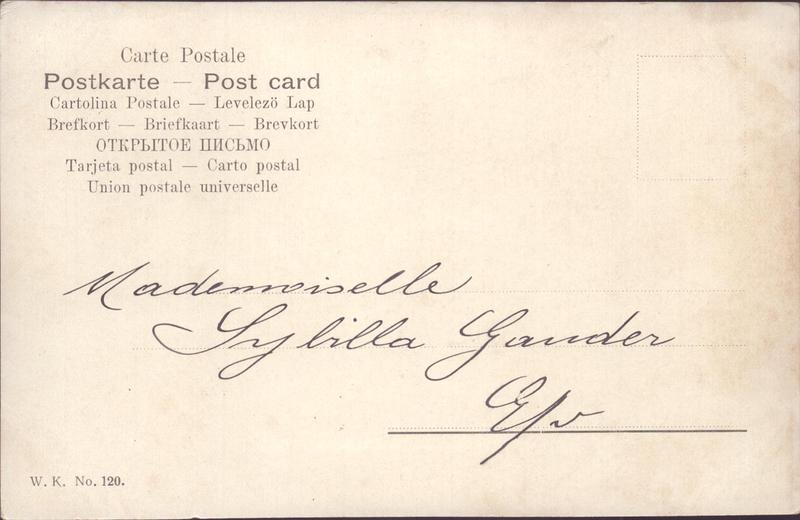 Carte Postale
Postkarte — Post card
Cartolina Postale — Levelezö Lap
Brefkort — Briefkaart — Brevkort
ОТКРЫТОЕ ПИСЬМО
Tarjeta postal — Carto postal
Union postale universelle
Mademoiselle
Sybilla Gander
E/v
W. K. No. 120.